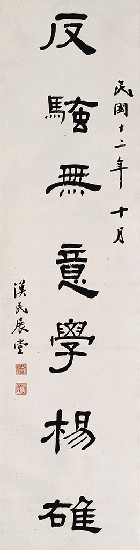 民國十二年十月
反騷無意學楊雄
漢民展堂